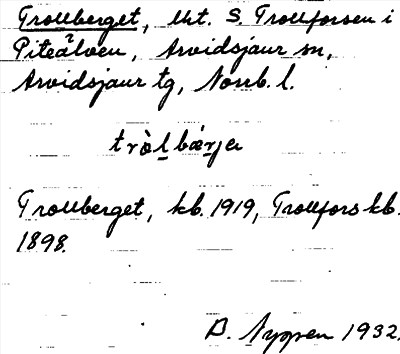 Trollberget, lht. S. Trollforsen i
Piteälven, Arvidsjaur sn,
Arvidsjaur tg, Norrb. l.
tròlbárje
Trollberget, kb. 1919, Trollfors kb.
1898.
B. Nyppen 1932.